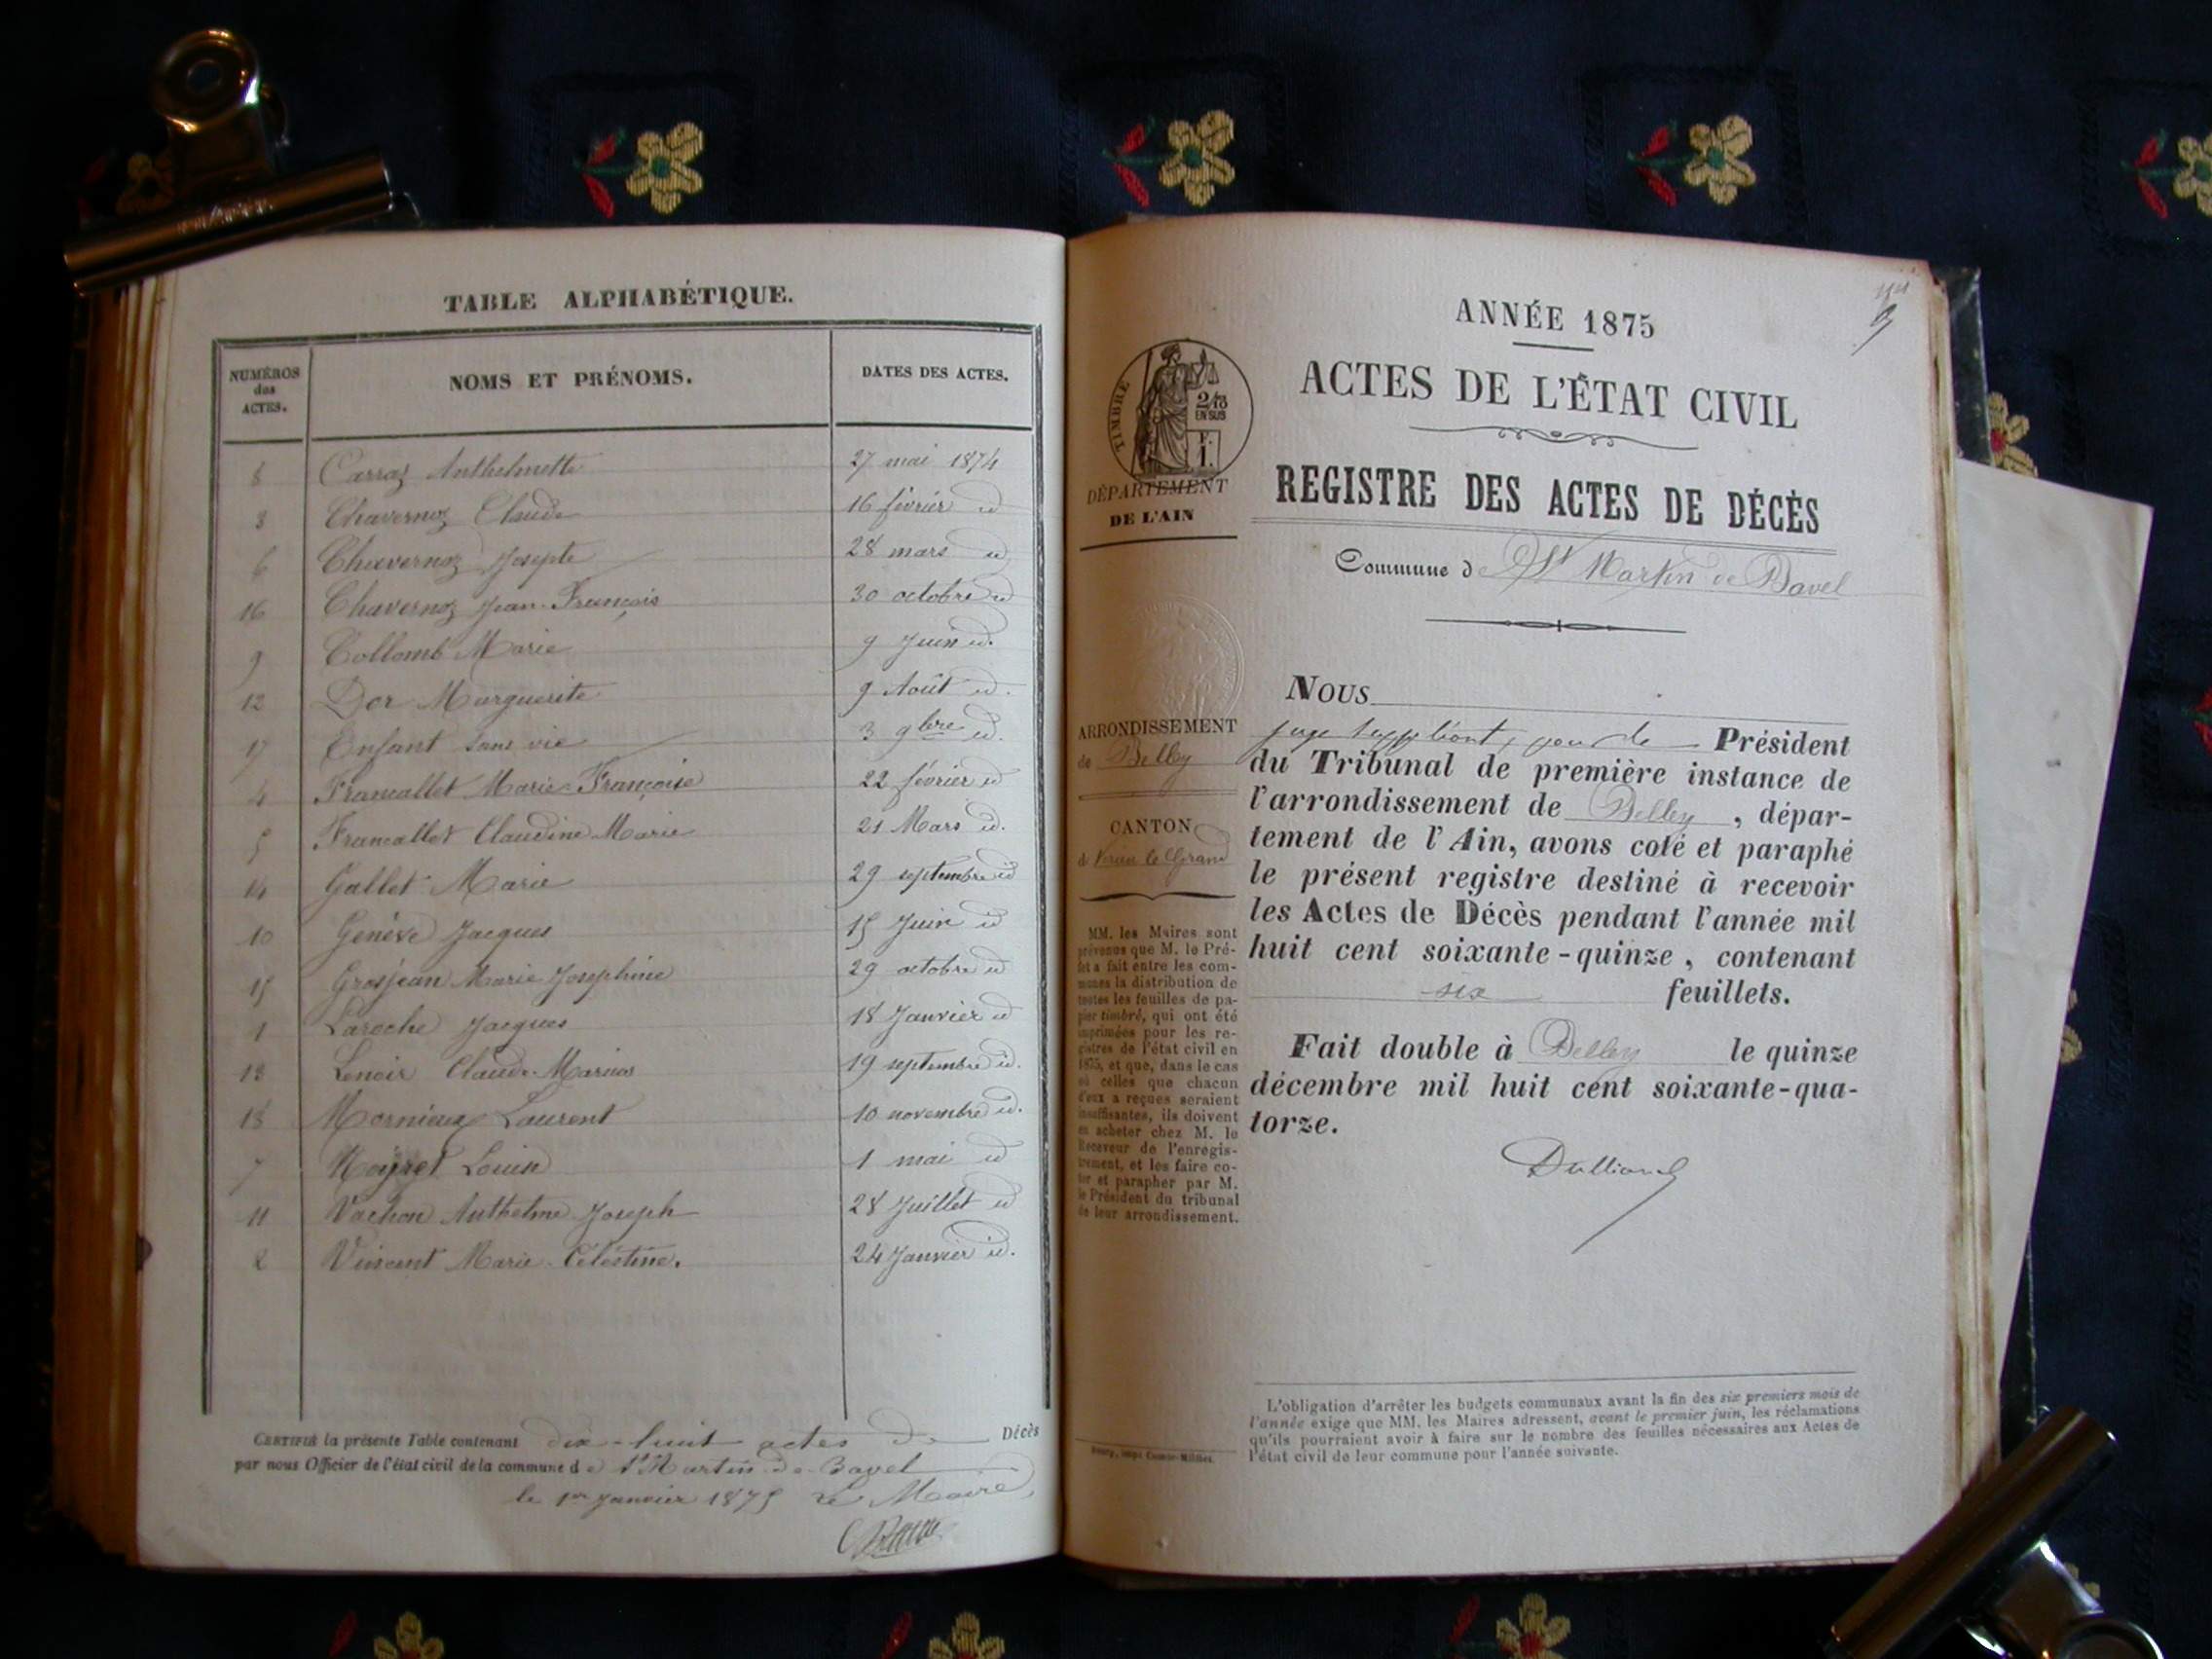 TABLE ALPHABÉTIQUE.
NUMÉROS des ACTES. NOMS ET PRÉNOMS. DATES DES ACTES.
8 Carraz Anthelmette 27 mai 1874
3 Chavernoz Claude 16 février id
6 Chavernoz Josepte 28 mars id
16 Chavernoz Jean-François 30 octobre id
9 Collomb Marie 9 Juin id.
12 Dor Marguerite 9 Août id.
17 Enfant sans vie 3 9bre id.
4 Francallet Marie-Françoise 22 février id
5 Francallet Claudine Marie 21 Mars id.
14 Gallet Marie 29 septembre id
10 Genève Jacques 15 Juin id
15 Grosjean Marie Josephine 29 octobre id
1 Laroche Jacques 18 Janvier id
13 Lenoir Claude-Marius 19 septembre id.
18 Mornieux Laurent 10 novembre id.
7 Moyret Louise 1 mai id
11 Vachon Anthelme Joseph 28 Juillet id
2 Vincent Marie Célestine. 24 Janvier id.
CERTIFIÉ la présente Table contenant dix-huit actes de Décès
par nous Officier de l'état civil de la commune de St Martin-de-Bavel
le 1er Janvier 1875 Le Maire,
ANNÉE 1875
ACTES DE L'ÉTAT CIVIL
REGISTRE DES ACTES DE DÉCÈS
Commune de St Martin de Bavel
TIMBRE
2/10
EN SUS
DÉPARTEMENT
DE L'AIN
ARRONDISSEMENT
de Belley
CANTON
de Virieu le Grand
MM. les Maires sont
prévenus que M. le Pré-
fet a fait entre les com-
munes la distribution de
toutes les feuilles de pa-
pier timbré, qui ont été
imprimées pour les re-
gistres de l'état civil en
1875, et que, dans le cas
où celles que chacun
d'eux a reçues seraient
insuffisantes, ils doivent
en acheter chez M. le
Receveur de l'enregis-
trement, et les faire co-
ter et parapher par M.
le Président du tribunal
de leur arrondissement.
NOUS
juge suppléant, pour le Président
du Tribunal de première instance de
l'arrondissement de Belley, dépar-
tement de l'Ain, avons coté et paraphé
le présent registre destiné à recevoir
les Actes de Décès pendant l'année mil
huit cent soixante-quinze, contenant
six feuillets.
Fait double à Belley le quinze
décembre mil huit cent soixante-qua-
torze.
L'obligation d'arrêter les budgets communaux avant la fin des six premiers mois de
l'année exige que MM. les Maires adressent, avant le premier juin, les réclamations
qu'ils pourraient avoir à faire sur le nombre des feuilles nécessaires aux Actes de
l'état civil de leur commune pour l'année suivante.